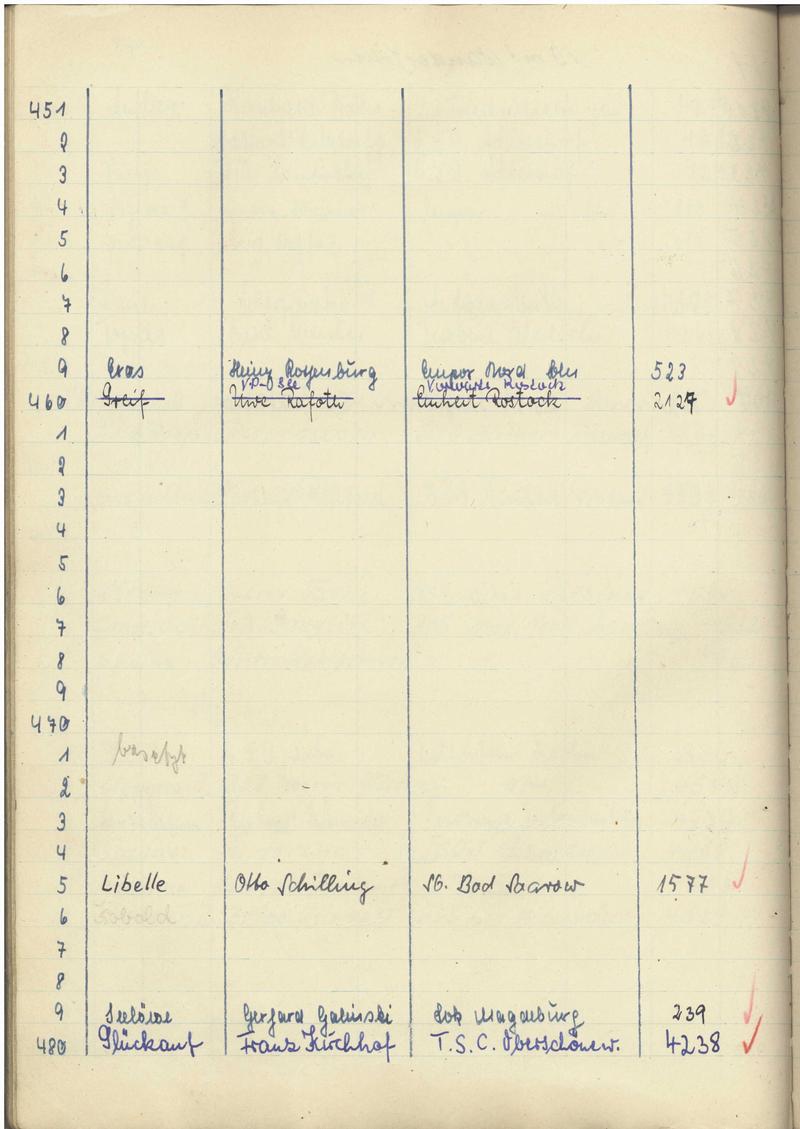 451
2
3
4
5
6
7
8
9 Eros Heinz Rosenburg Empor Nord Bln 523
VP-See Vorwärts Rostock
460 Greif Uwe Rafoth Einheit Rostock 2127
1
2
3
4
5
6
7
8
9
470
1 besetzt
2
3
4
5 Libelle Otto Schilling SG. Bad Saarow 1577
6 Kobold
7
8
9 Seelöwe Gerhard Galinski Lok Magdeburg 239
480 Glückauf Franz Kirchhof T.S.C. Oberschönew. 4238